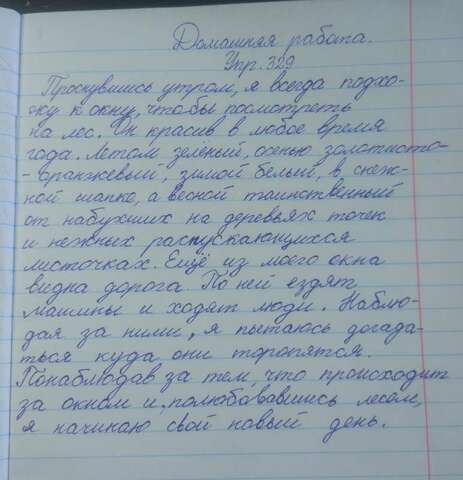 Домашняя работа.
Упр. 329
Проснувшись утром, я всегда подхо-
жу к окну, чтобы посмотреть
на лес. Он красив в любое время
года. Летом зелёный, осенью золотисто-
-оранжевый, зимой белый, в снеж-
ной шапке, а весной таинственный
от набухших на деревьях точек
и нежных распускающихся
листочках. Ещё из моего окна
видна дорога. По ней ездят
машины и ходят люди. Наблю-
дая за ними, я пытаюсь догада-
ться куда они торопятся.
Понаблюдав за тем, что происходит
за окном и, полюбовавшись лесом,
я начинаю свой новый день.